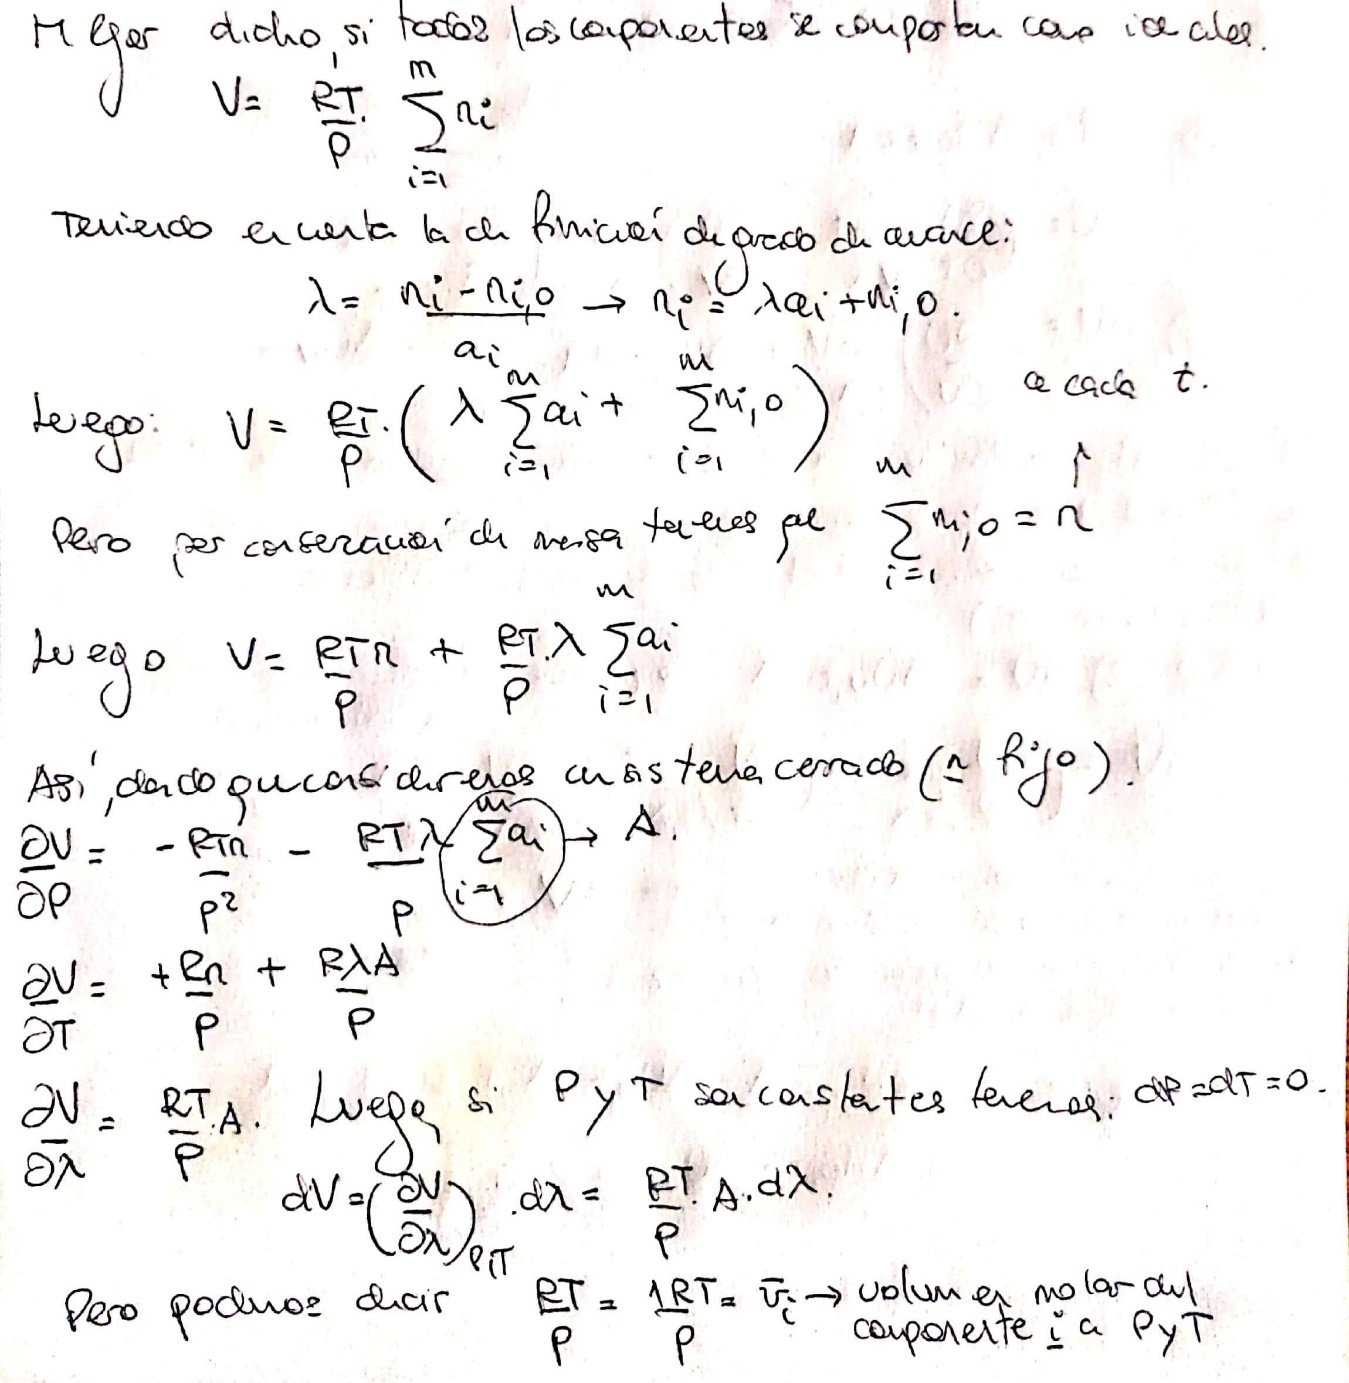 Mejor dicho, si todos los componentes se comportan como ideales.
V = RT/P · Σ_{i=1}^{m} ni
Teniendo en cuenta la definición de grado de avance:
λ = (ni - ni,0)/ai → ni = λai + ni,0.
Luego: V = RT/P · ( λ Σ_{i=1}^{m} ai + Σ_{i=1}^{m} ni,0 )
a cada t.
↑
Pero por conservación de masa tenemos que Σ_{i=1}^{m} ni,0 = n
Luego V = RTn/P + RT/P · λ Σ_{i=1}^{m} ai
Así, dado que consideremos un sistema cerrado (n fijo).
∂V/∂P = -RTn/P² - RTλ/P Σ_{i=1}^{m} ai → A.
∂V/∂T = +Rn/P + RλA/P
∂V/∂λ = RT/P · A. Luego, si P y T son constantes tenemos: dP = dT = 0.
dV = (∂V/∂λ)P,T · dλ = RT/P · A · dλ.
Pero podemos decir RT/P = 1RT/P = v̄i → volumen molar del
componente i a P y T